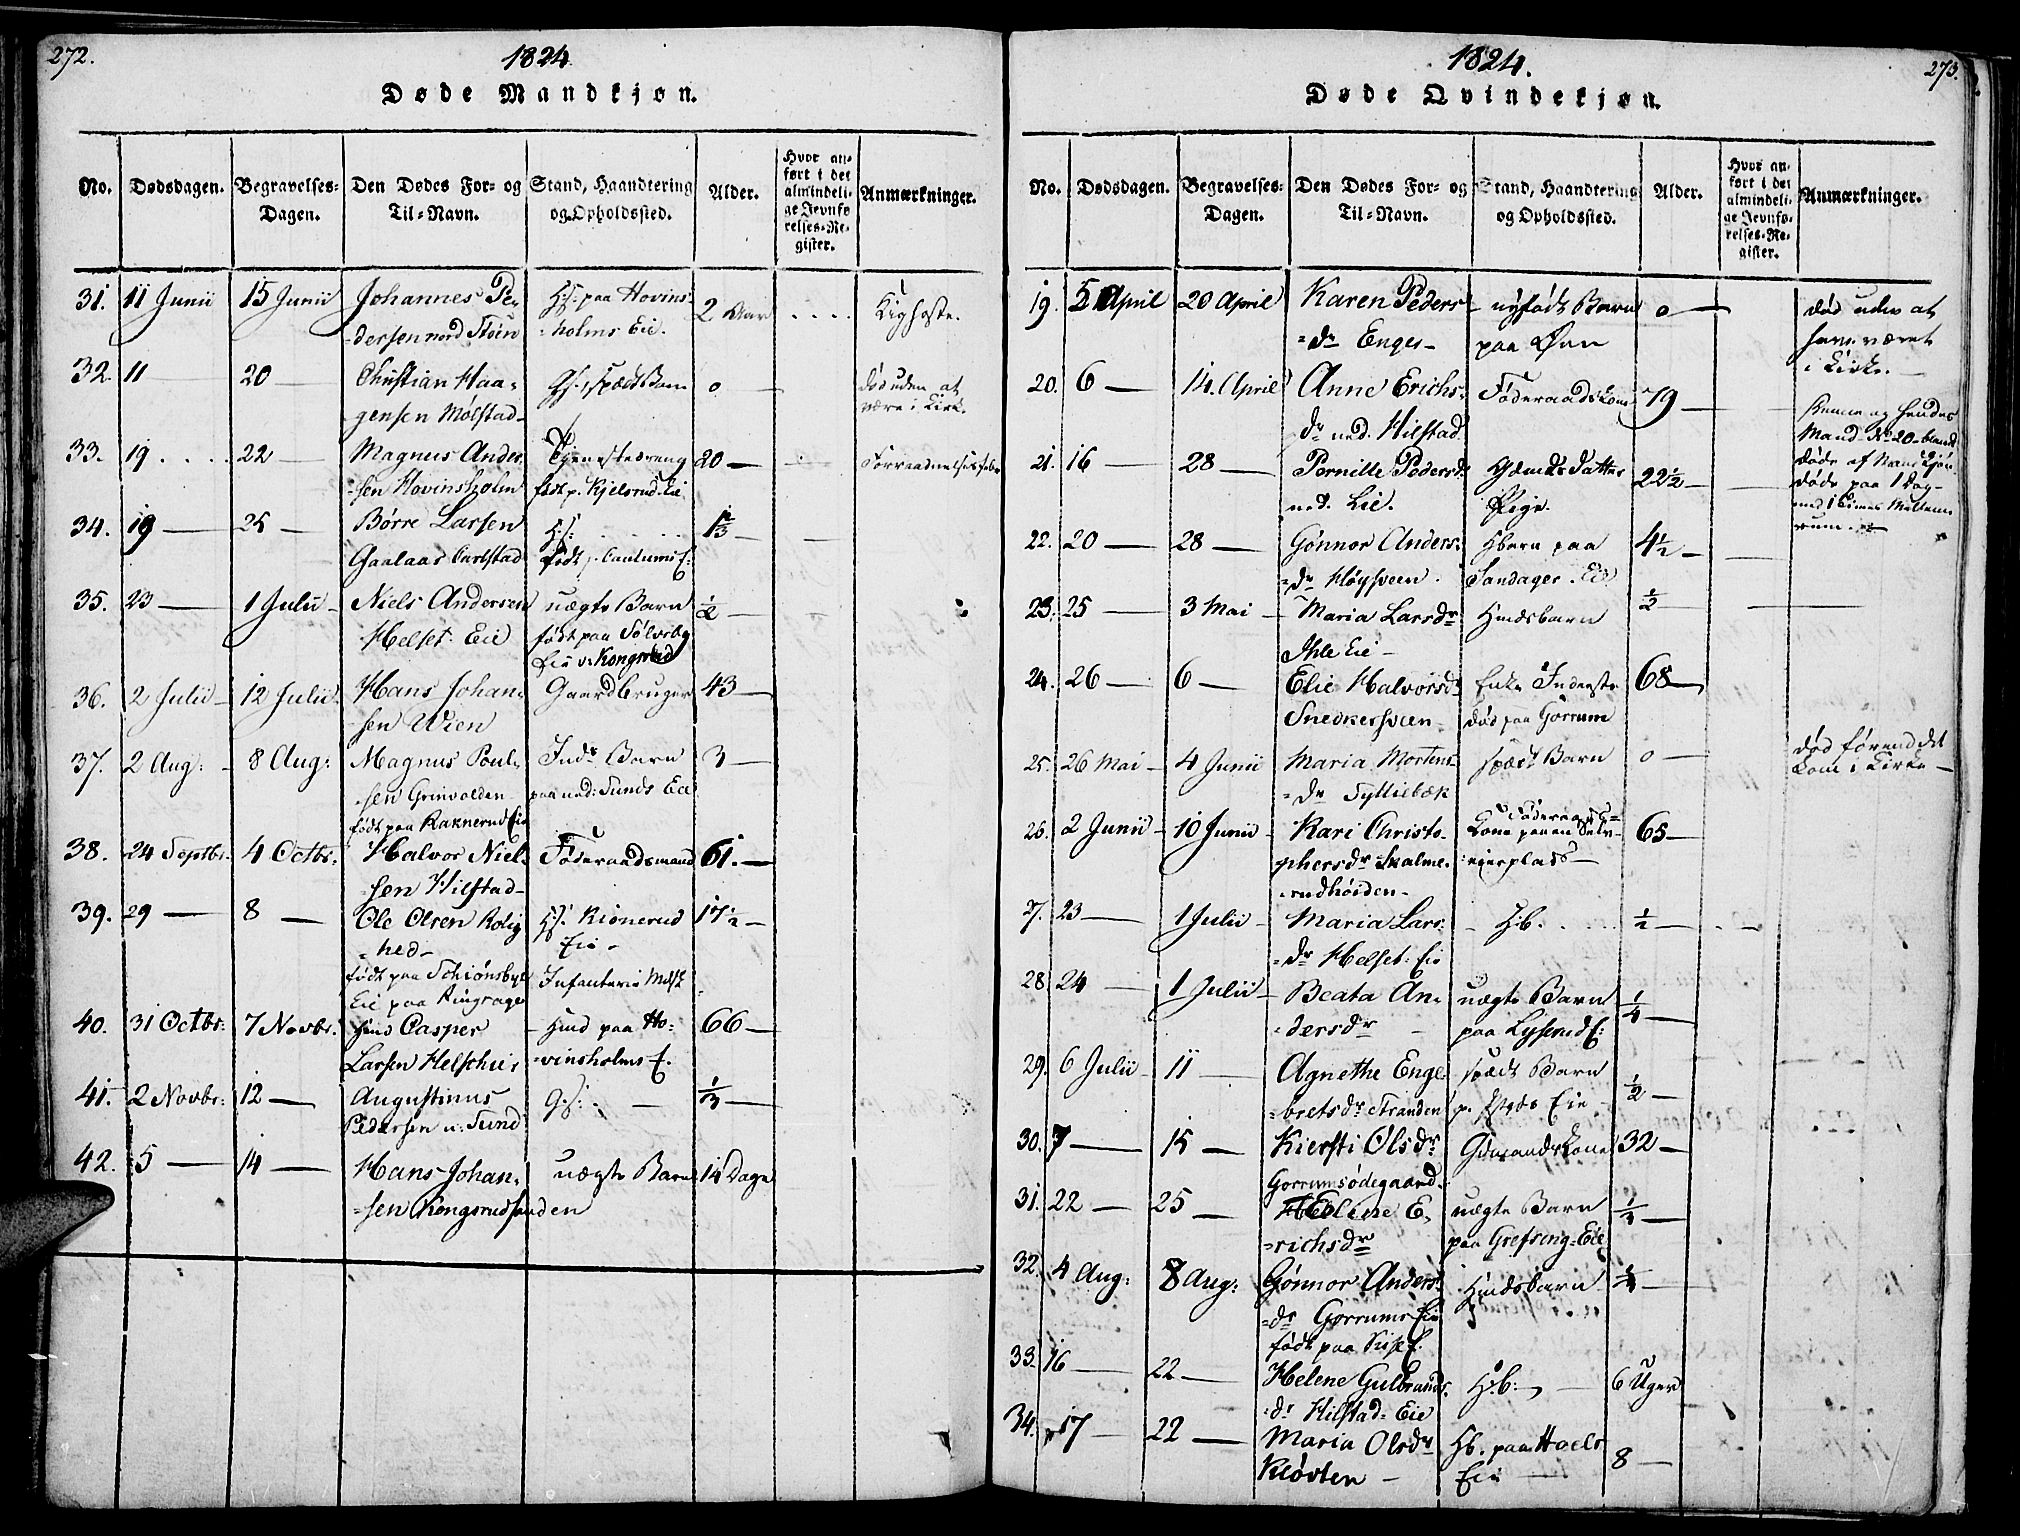 272.
1824
Døde Mandkjøn.
No. Dødsdagen. Begravelses-Dagen. Den Dødes For- og Til-Navn. Stand, Haandtering og Opholdssted. Alder. Hvor anført i det almindelige Jevnførelses-Register. Anmærkninger.
31. 11 Junii 15 Junii Johannes Pe-
dersen nord Steen H:S: paa Hovins-
=holms Eie. 2 Aar Kighoste.
32. 11 — 20 — Christian Haa-
gensen Mølstad G.S., spædt Barn 0 — død uden at
være i Kirk.
33. 19 .... 22 — Magnus Ander-
=sen Hovinsholm Tjenestedreng
født p. Kjelsrud Eie 20 — Forraadnelsesfeber
34. 19 — 25 — Børre Larsen
Gaalaas Carlstad H:S:
født p. E: 1/3 —
35. 23 — 1 Julii Niels Andersen
Helset: Eie uægte Barn
født paa Sølvsby
Eie v: Kongsrud 1/2 —
36. 2 Julii 12 Julii Hans Johan-
sen Wien Gaardbruger 43 —
37. 2 Aug: 8 Aug: Magnus Poul-
sen Grinvolden
født paa Raknerud Eie Inds Barn
paa ned: Sunds Eie 3 —
38. 24 Septbr. 4 Octbr. Halvor Niel-
sen Hilstad Föderaadsmand 61. —
39. 29 — 8 — Ole Olsen Rolig
=hed
født paa Schiønsbye
Eie paa Ringsager H:S: Kionerud
Eie 17 1/2 —
40. 31 Octbr. 7 Novbr. Jens Casper
Larsen Helschier Infanterie
Hmd paa Ho-
=vinsholms E. 66 —
41. 2 Novbr. 12 — Augustinus
Pedersen n. Sund G:S: — 1/3 —
42. 5 — 14 — Hans Johan-
=sen Kongsrudsanden uægte Barn 14 Dage
273.
1824.
Døde Qvindekjøn.
No. Dødsdagen. Begravelses-Dagen. Den Dødes For- og Til-Navn. Stand, Haandtering og Opholdssted. Alder. Hvor anført i det almindelige Jevnførelses-Register. Anmærkninger.
19. 5 April 20 April Karen Peders
=dr Enger nyfødt Barn
paa Øen 0 — død uden at
have været
i Kirke.
20. 6 — 14. April Anne Erichs-
dr ned. Hilstad Föderaadskone 79 — Denne og hendes
Mand No 20 blandt
døde af Mandkjøn
døde paa 1 Dag
med 1 Times Mellem-
rum.
21. 16 — 28 — Pernille Pedersdr
ned. Lie. Gdmds Datter
Pige. 22 1/2 —
22. 20 — 28 — Gønnor Anders-
=dr Høysveen. Hbarn paa
Sandager. Eie 4 1/2 —
23. 25 — 3 Mai Maria Larsdr
Ihle Eie Hmdsbarn 1/2
24. 26 — 6 — Elie Halvorsdr
Snedkersveen Enke Inderste
død paa Gorrum 68 —
25. 26 Mai 4 Junii Maria Mortens-
=dr Sylliebæk spædt Barn 0 — død förend det
kom i Kirke
26. 2 Junii 10 Junii Kari Christo-
phersdr Skalme-
rudhøiden Föderaads-
Kone paa en Selv-
eierplads 65 —
27. 23 — 1 Julii Maria Lars-
=dr Helset: Eie H:b. 1/2 —
28. 24 — 1 Julii Beata An-
=dersdr uægte Barn
paa Lyserud E: 1/4 —
29. 6 Julii 11 — Agnethe Enge-
=bretsdr Stranden spædt Barn
p. Eie 1/2 —
30. 7 — 15 — Kiersti Olsdr
Gorrumsødegaard Gdmands Kone 32 —
31. 22 — 25 — Helene E-
=richsdr uægte Barn
paa Grefseng=Eie 1/4 —
32. 4 Aug: 8 Aug: Gønnor Anders-
=dr Gorrums Eie
født paa E. Hmdsbarn 1/4 —
33. 16 — 22 — Helene Gulbrands-
=dr Hilstad=Eie H:b: 6 Uger
34. 17 — 22 — Maria Olsdr
Kløvten Hb. paa Hoels
Eie 8 —